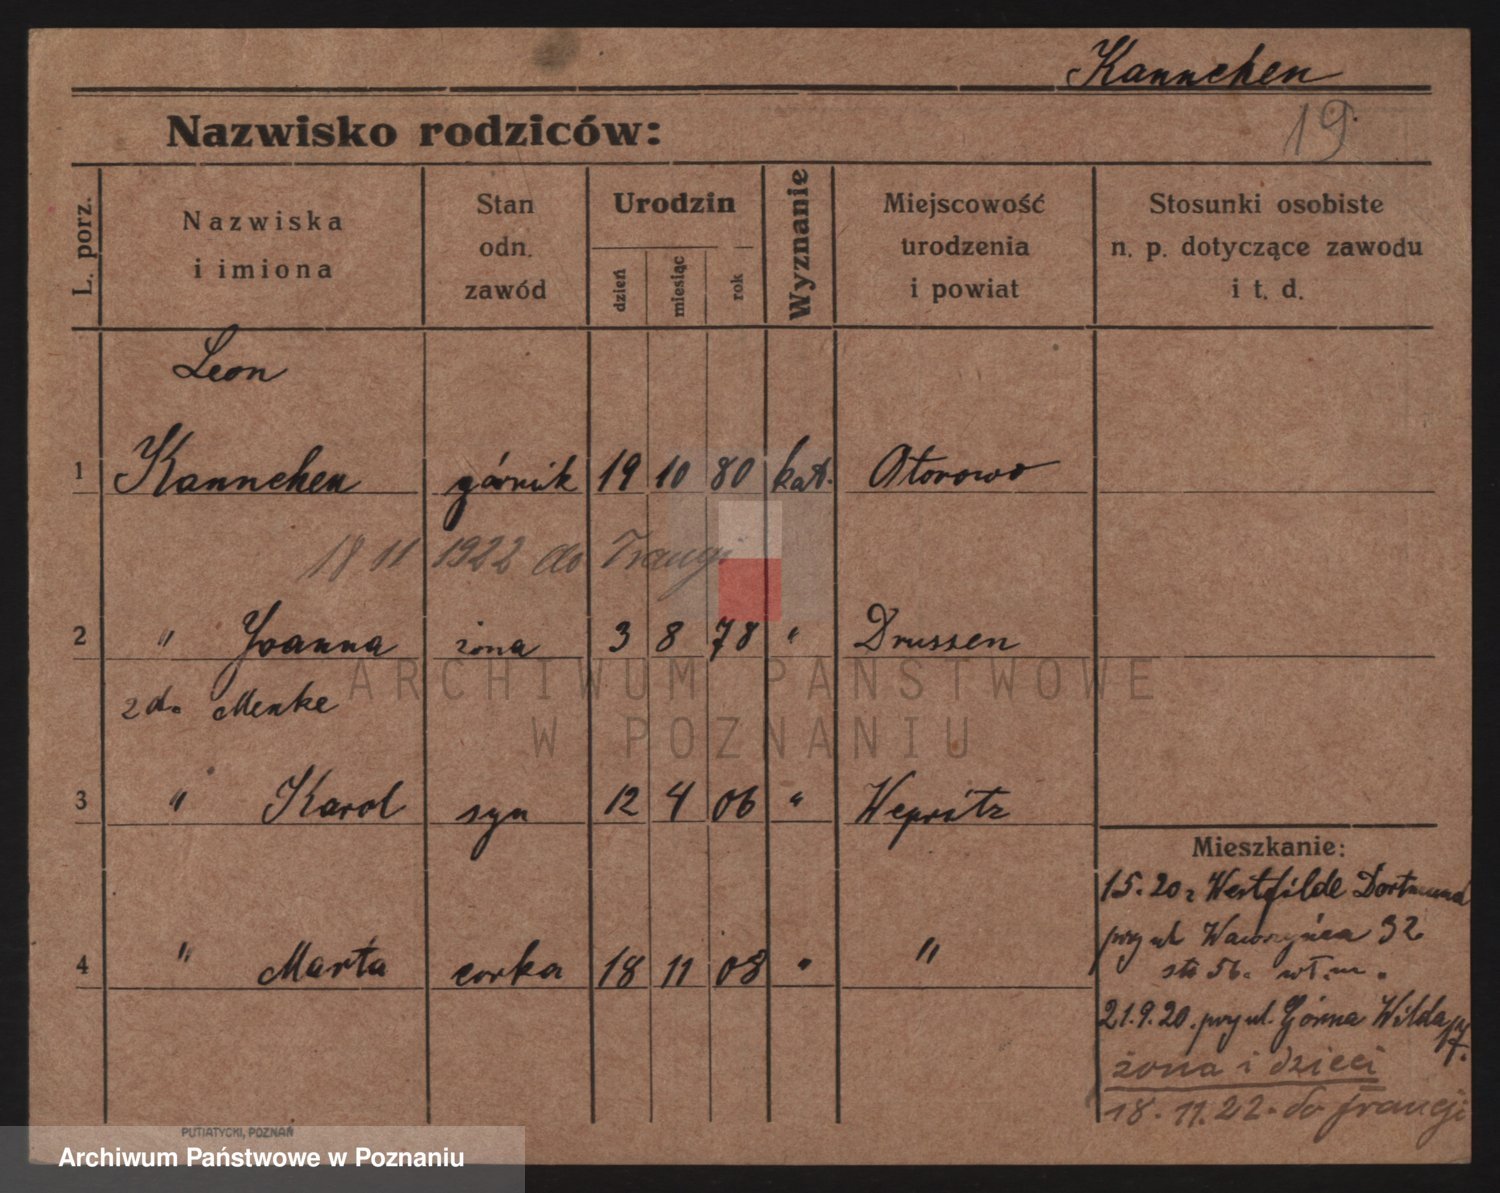 Kannchen
19
Nazwisko rodziców:
L. porz.
Nazwiska
i imiona
Stan
odn.
zawód
Urodzin
dzień
miesiąc
rok
Wyznanie
Miejscowość
urodzenia
i powiat
Stosunki osobiste
n. p. dotyczące zawodu
i t. d.
Leon
1 Kannchen górnik 19 10 80 kat. Otorowo
18 11 1922 do Francji
2 " Joanna żona 3 8 78 " Drussen
zd. Menke
3 " Karol syn 12 4 06 " Wepritz
4 " Marta corka 18 11 08 " "
Mieszkanie:
15.20 z Westfilde Dortmund
przy ul Wawrzyńca 32
21.9.20. przy ul. Górna Wilda
żona i dzieci
18.11.22. do francji
PUTIATYCKI, POZNAŃ
ARCHIWUM PAŃSTWOWE
W POZNANIU
Archiwum Państwowe w Poznaniu